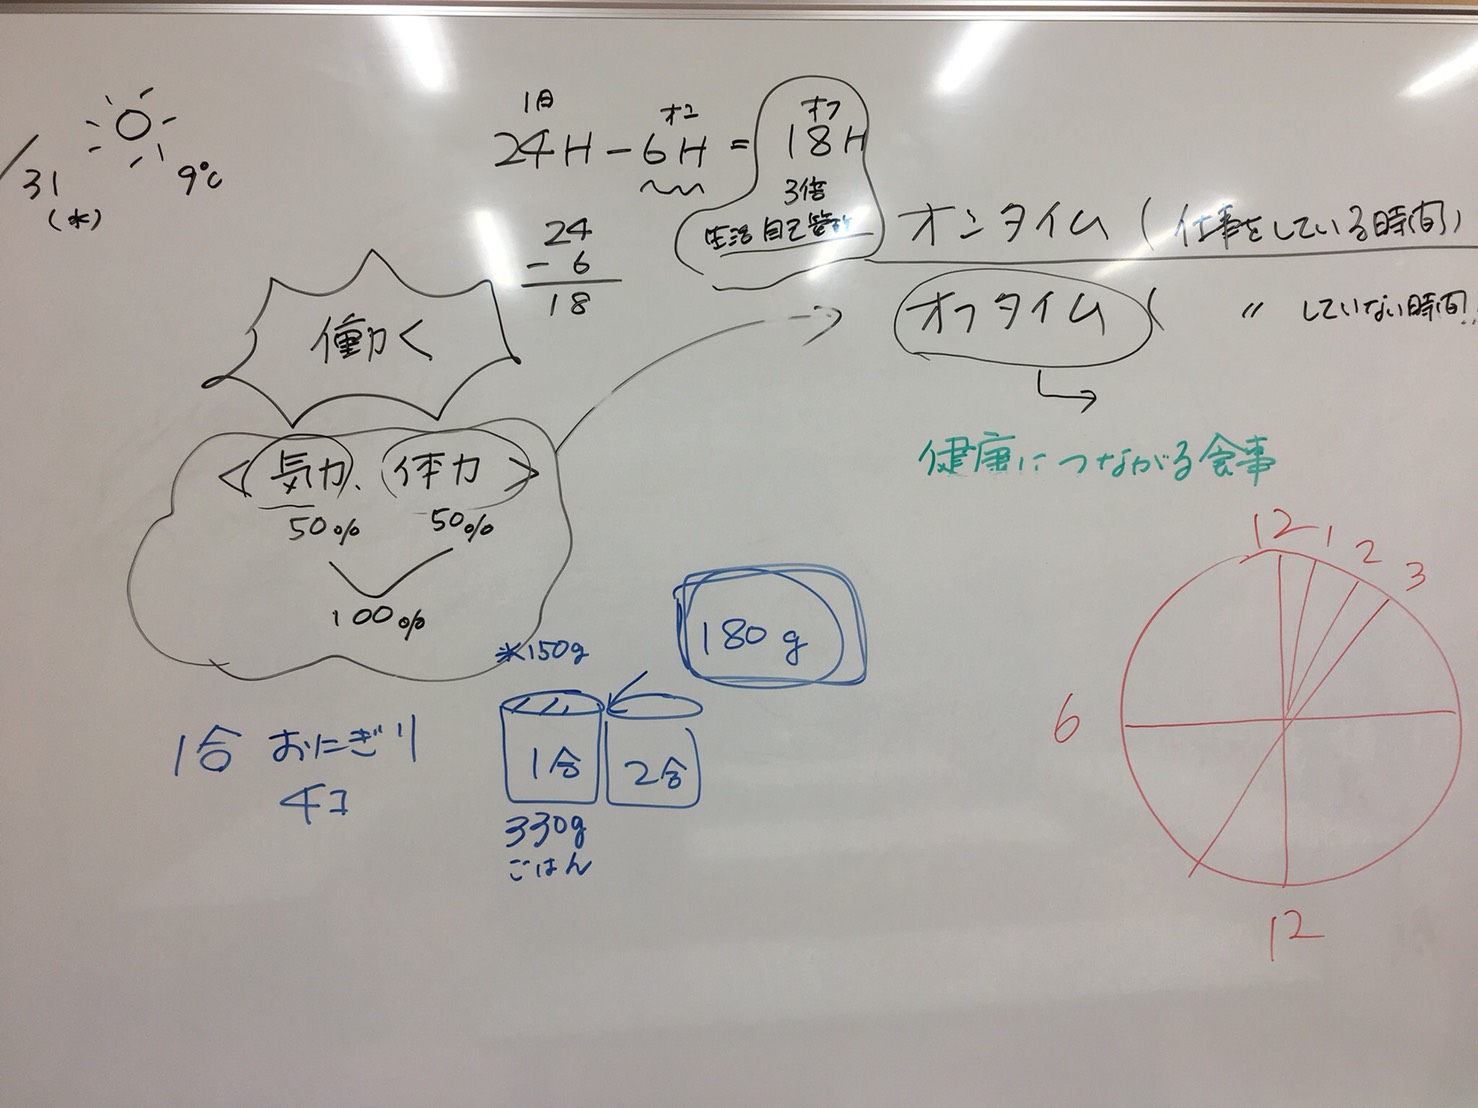 /31
(水)
9℃
1日
オン
オフ
24H-6H=18H
3倍
生活 自己管理
24
-6
18
オンタイム(仕事をしている時間)
オフタイム( 〃 していない時間)
働く
<気力、体力>
50% 50%
100%
健康につながる食事
※150g
180g
1合 おにぎり
4コ
1合
2合
330g
ごはん
12 1 2 3
6
12